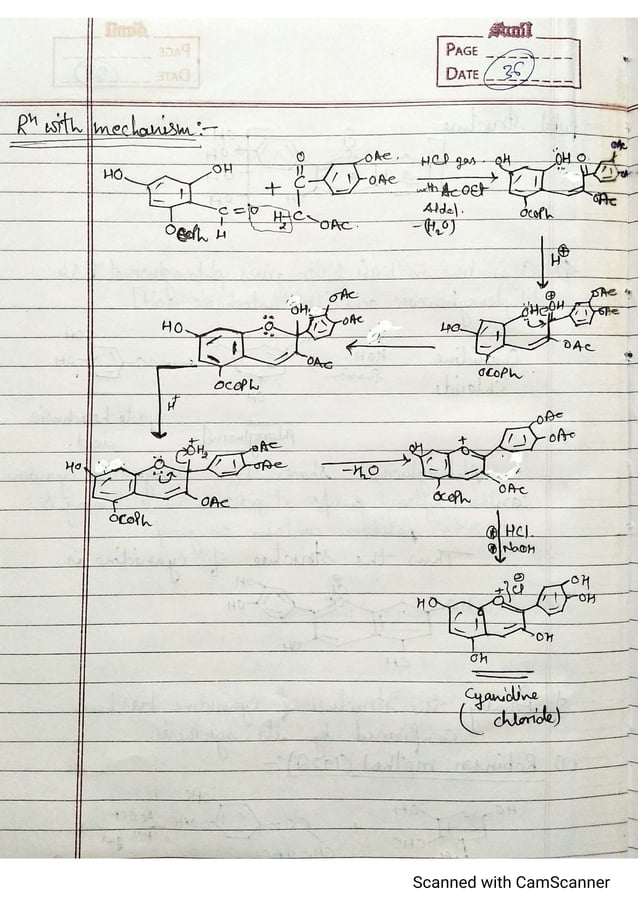 Sunil
PAGE
DATE 36
Rn with mechanism:-
HO OH
OCOPh
C=O
H
+
O
C
H2C
OAc.
OAc.
OAc
HCl gas.
with AcOEt
Aldol.
-(H2O)
OH OH O OAc
OAc
OCOPh
H⊕
HO OH OAc
OAc
OAc
OCOPh
HO O OH OAc
OAc
OAc
OCOPh
H+
HO O +OH2 OAc
OAc
OAc
OCOPh
-H2O
OH O+ OAc
OAc
OAc
OCOPh
HCl.
NaOH
HO O+ Cl⊖ OH
OH
OH
OH
Cyanidine
(chloride)
Scanned with CamScanner